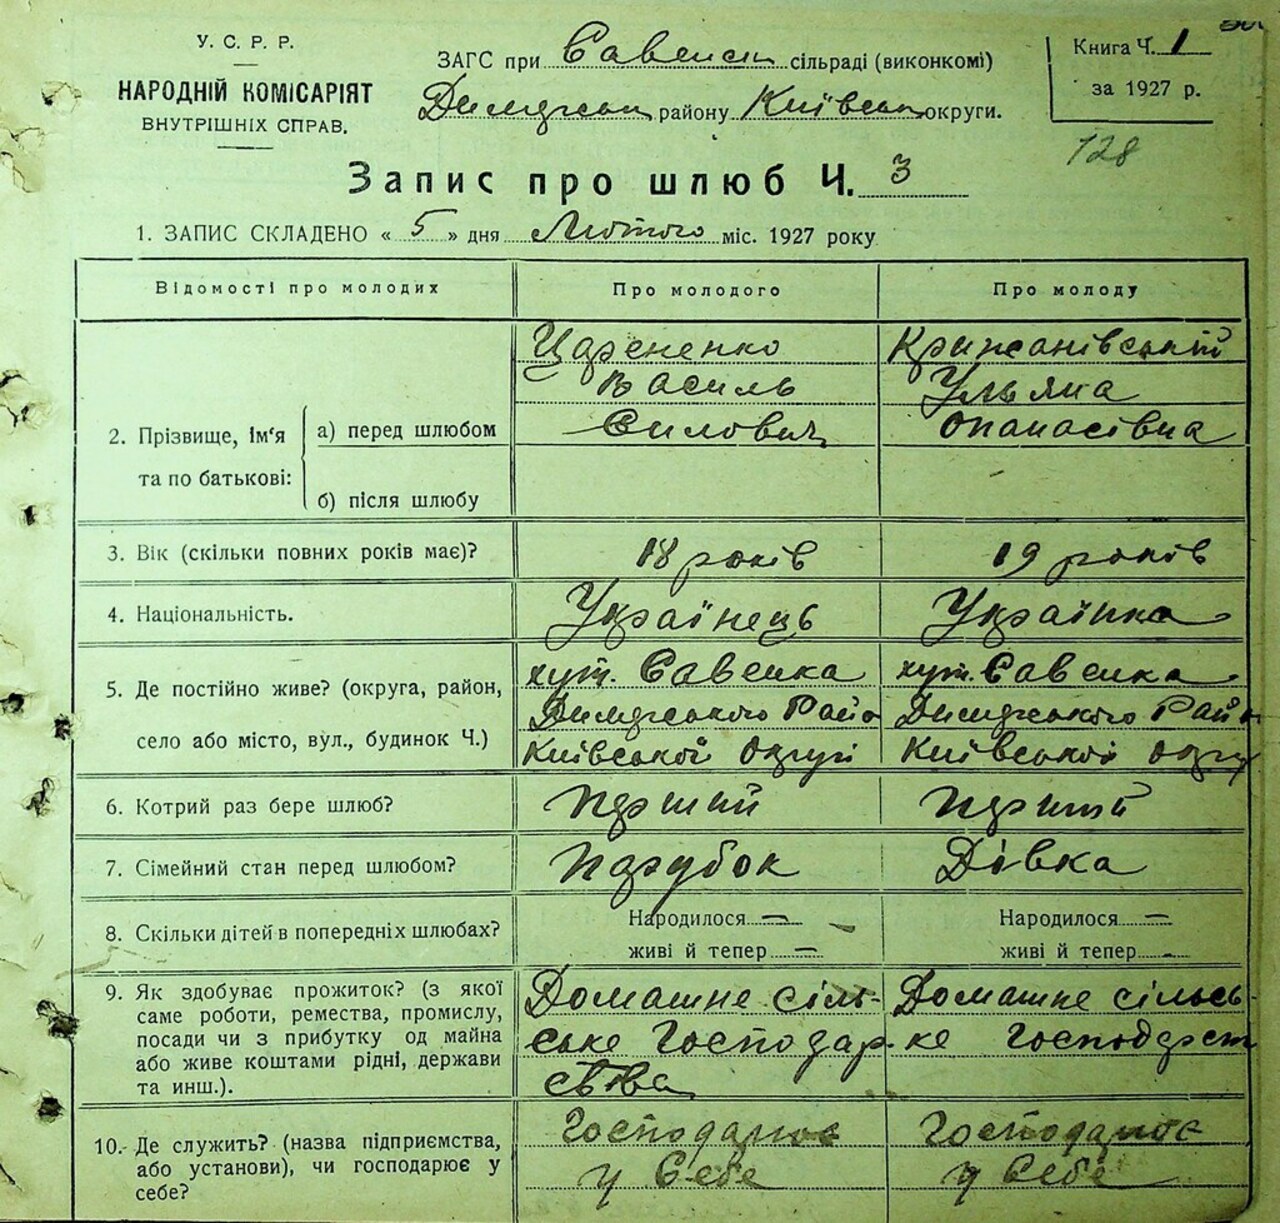 У. С. Р. Р.
НАРОДНІЙ КОМІСАРІЯТ
ВНУТРІШНІХ СПРАВ.
ЗАГС при Савенськ сільраді (виконкомі)
Димерськ району Київськ округи.
Книга Ч. 1
за 1927 р.
128
Запис про шлюб Ч. 3
1. ЗАПИС СКЛАДЕНО « 5 » дня Лютого міс. 1927 року
Відомості про молодих Про молодого Про молоду
2. Прізвище, ім'я та по батькові:
а) перед шлюбом
б) після шлюбу
Василь
Силович
Крижанівській
Ульяна
Опанасівна
3. Вік (скільки повних років має)? 18 років 19 років
4. Національність. Українець Українка
5. Де постійно живе? (округа, район,
село або місто, вул., будинок Ч.)
хут. Савенка
Димерського Райо
Київської Округи
хут. Савенка
Димерського Райо
Київської Округ
6. Котрий раз бере шлюб? Перший Перший
7. Сімейний стан перед шлюбом? Парубок Дівка
8. Скільки дітей в попередніх шлюбах?
Народилося — Народилося —
живі й тепер — живі й тепер —
9. Як здобуває прожиток? (з якої
саме роботи, ремества, промислу,
посади чи з прибутку од майна
або живе коштами рідні, держави
та инш.).
Домашне сіль-
ське Господар-
ства
Домашне сільсь-
ке господарст
10. Де служить? (назва підприємства,
або установи), чи господарює у
себе?
Господарює
у Себе
Господарює
у Себе